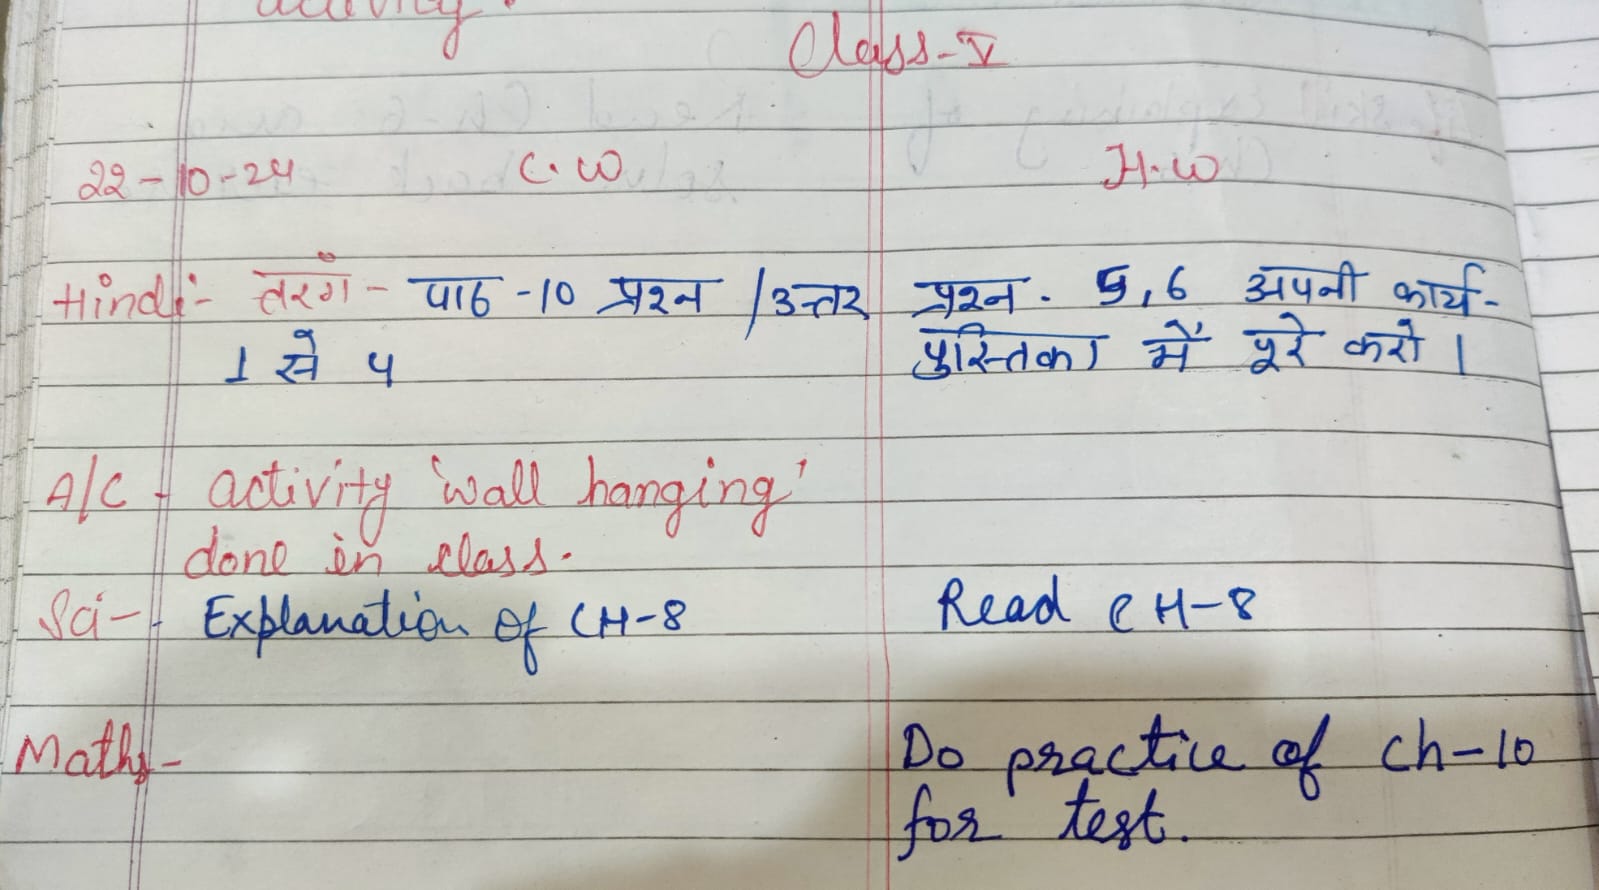 activity.
Class-V
22-10-24 C.W H.W
Hindi:- तरंग - पाठ -10 प्रश्न /उत्तर प्रश्न. 5,6 अपनी कार्य-
1 से 4 पुस्तिका में पूरे करो।
A/C - activity 'wall hanging'
done in class.
Sci- Explanation of CH-8 Read CH-8
Maths- Do practice of Ch-10
for test.